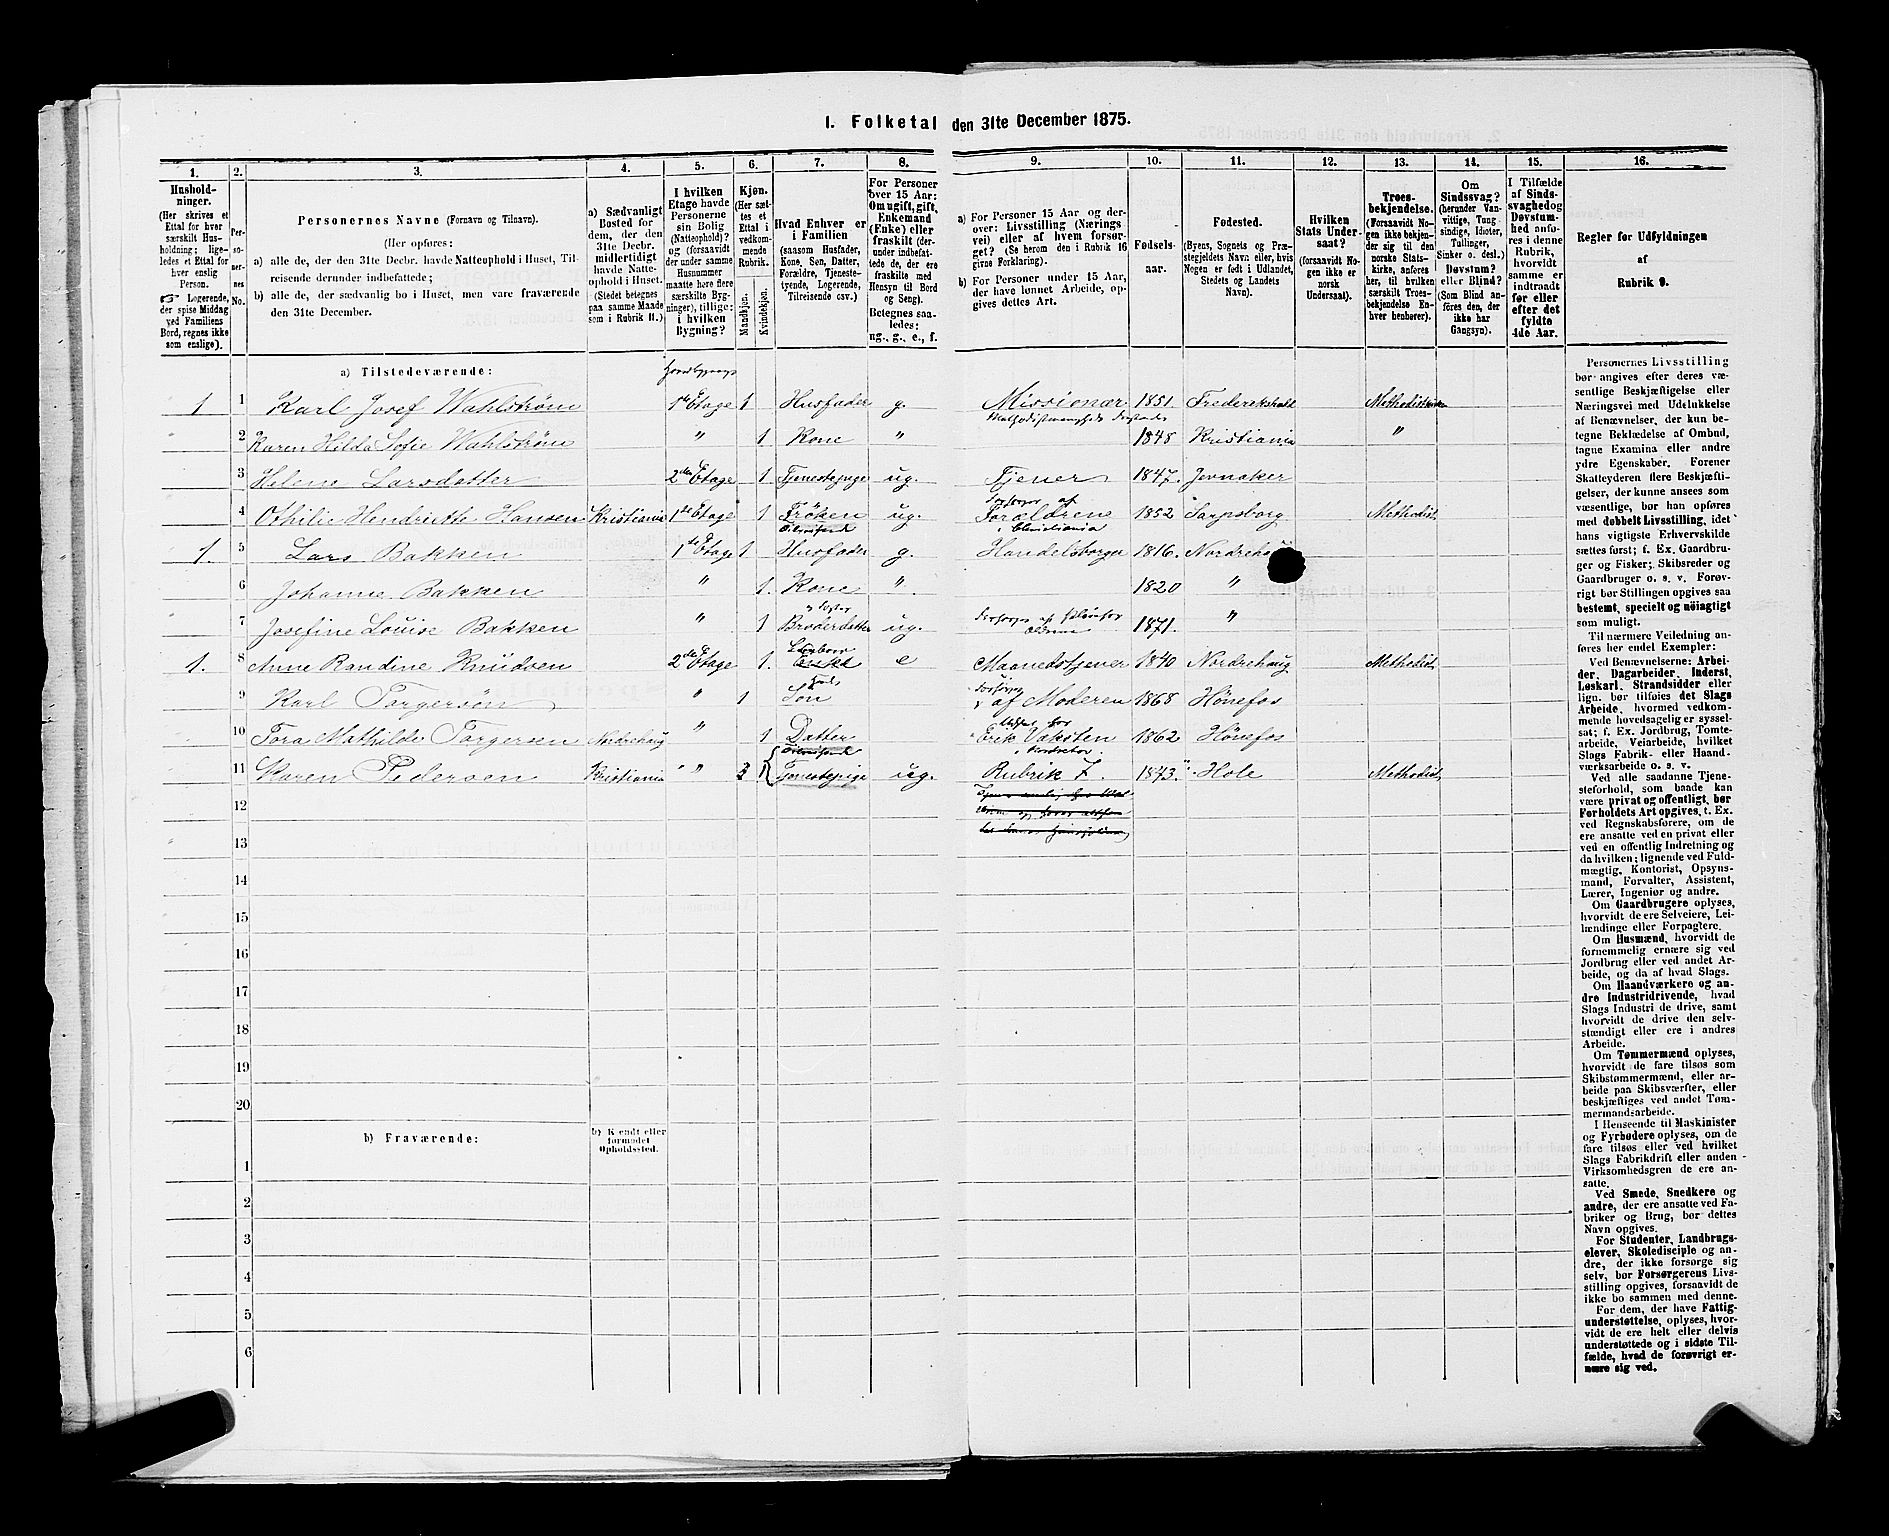 1. Folketal den 31te December 1875.
1.
Hushold-
ninger.
(Her skrives et
Ettal for hver
særskilt Hus-
holdning; lige-
ledes et Ettal for
hver enslig
Person.
☞ Logerende,
der spise Middag
ved Familiens
Bord, regnes ikke
som enslige).
2.
Per-
so-
ner-
nes
No.
3.
Personernes Navne (Fornavn og Tilnavn).
(Her opføres:
a) alle de, der den 31te Decbr. havde Natteophold i Huset, Til-
reisende derunder indbefattede;
b) alle de, der sædvanlig bo i Huset, men vare fraværende
den 31te December.
4.
a) Sædvanligt
Bosted for
dem, der den
31te Decbr.
midlertidigt
havde Natte-
ophold i Huset.
(Stedet betegnes
paa samme Maade
som i Rubrik 11.)
5.
I hvilken
Etage havde
Personerne
sin Bolig
(Natteophold)?
og (forsaavidt
der under samme
Husnummer
maatte høre flere
særskilte Byg-
ninger), tillige:
i hvilken
Bygning?
6.
Kjøn.
(Her sæt-
tes et
Ettal i
vedkom-
mende
Rubrik.
Mandkjøn.
Kvindekjøn.
7.
Hvad Enhver er
i Familien
(saasom Husfader,
Kone, Søn, Datter,
Forældre, Tjeneste-
tyende, Logerende,
Tilreisende osv.)
8.
For Personer
over 15 Aar:
Om ugift, gift,
Enkemand
(Enke) eller
fraskilt (der-
under indbefat-
tede de, der ere
fraskilte med
Hensyn til Bord
og Seng).
Betegnes saa-
ledes:
ug., g., e., f.
9.
a) For Personer 15 Aar og der-
over: Livsstilling (Nærings
vei) eller af hvem forsør-
get? (Se herom den i Rubrik 16
givne Forklaring).
b) For Personer under 15 Aar,
der have lønnet Arbeide, op-
gives dettes Art.
10.
Fødsels-
aar.
11.
Fødested.
(Byens, Sognets og Præ-
stegjeldets Navn eller, hvis
Nogen er født i Udlandet,
Stedets og Landets
Navn).
12.
Hvilken
Stats Under-
saat?
(forsaavidt No-
gen ikke er
norsk
Undersaat).
13.
Troes-
bekjendelse.
(Forsaavidt No-
gen ikke bekjen-
der sig til den
norske Stats-
kirke, anføres
her, til hvilken
særskilt Troes-
bekjendelse En-
hver henhører).
14.
Om
Sindssvag?
(herunder Van-
vittige, Tung
sindige, Idioter,
Tullinger,
Sinker o. desl.)
Døvstum?
eller Blind?
(Som Blind an-
føres den, der
ikke har
Gangsyn).
15.
I Tilfælde
af Sinds-
svaghed og
Døvstum-
hed anfø-
res i denne
Rubrik,
hvorvidt
samme er
indtraadt
før eller
efter det
fyldte
4de Aar.
16.
Regler for Udfyldningen
af
Rubrik 9.
a) Tilstedeværende:
1 1 Karl Josef Wahlstrøm 1ste Etage 1 Husfader g. Missionær 1851. Frederikshald Methodistkirken
2 Karen Hilda Sofie Wahlstrøm " 1 Kone " 1848 Kristiania "
3 Helene Larsdatter 2den Etage 1 Tjenestepige ug. Tjener 1847. Jevnaker
4 Othilie Henriette Hansen Kristiania 1ste Etage 1 Frøken ug. Forsørges af Forældrene i Christiania 1852 Sarpsborg Methodist
Tilreisende
1. 5 Lars Bakken 1ste Etage 1 Husfader g. Handelsborger 1816. Nordrehaug
6 Johanne Bakken " 1. Kone ". 1820 "
7 Josefine Louise Bakken " 1 Broderdatter ug. 1871. "
1. 8 Anne Randine Knudsen 2den Etage 1. Enke e Maanedstjener 1840 Nordrehaug Methodist
9 Karl Torgersøn " 1 Søn af Moderen 1868 Hønefos
10 Tora Mathilde Torgersen Nordrehaug " 1 Datter Erik Vaksten 1862 Hønefos
Tilreisende
11 Karen Pedersen Kristiania " " 1 Tjenestepige ug. Rubrik 7. 1873. Hole Methodist
12
13
14
15
16
17
18
19
20
b) Fraværende:
b) Kjendt eller
formodet
Opholdssted.
1
2
3
4
5
6
Personernes Livsstilling
bør angives efter deres væ-
sentlige Beskjæftigelse eller
Næringsvei med Udelukkelse
af Benævnelser, der kun be-
tegne Beklædelse af Ombud,
tagne Examina eller andre
ydre Egenskaber. Forener
Skatteyderen flere Beskjæfti-
gelser, der kunne ansees som
væsentlige, bør han opføres
med dobbelt Livsstilling, idet
hans vigtigste Erhvervskilde
sættes først; f. Ex. Gaardbru-
ger og Fisker; Skibsreder og
Gaardbruger o. s. v. Forøv-
rigt bør Stillingen opgives saa
bestemt, specielt og nøiagtigt
som muligt.
Til nærmere Veiledning an-
føres her endel Exempler:
Ved Benævnelserne: Arbei-
der, Dagarbeider, Inderst,
Løskarl, Strandsidder eller
lign. bør tilføies det Slags
Arbeide, hvormed vedkom-
mende hovedsagelig er syssel-
sat; f. Ex. Jordbrug, Tomte-
arbeide, Veiarbeide, hvilket
Slags Fabrik- eller Haand-
værksarbeide o. s. v.
Ved alle saadanne Tjene-
steforhold, som baade kan
være privat og offentligt, bør
Forholdets Art opgives, t. Ex.
ved Regnskabsførere, om de
ere ansatte ved en privat eller
ved en offentlig Indretning og
da hvilken; lignende ved Fuld-
mægtig, Kontorist, Opsyns-
mand, Forvalter, Assistent,
Lærer, Ingeniør og andre.
Om Gaardbrugere oplyses,
hvorvidt de ere Selveiere, Lei-
lændinge eller Forpagtere.
Om Husmænd, hvorvidt de
fornemmelig ernære sig ved
Jordbrug eller ved andet Ar-
beide, og da af hvad Slags.
Om Haandværkere og an-
dre Industridrivende, hvad
Slags Industri de drive, samt
hvorvidt de drive den selv-
stændigt eller ere i andres
Arbeide.
Om Tømmermænd oplyses,
hvorvidt de fare tilsøs som
Skibstømmermænd, eller ar-
beide paa Skibsværfter, eller
beskjæftiges ved andet Tøm-
mermandsarbeide.
I Henseende til Maskinister
og Fyrbødere oplyses, om de
fare tilsøs eller ved hvilket
Slags Fabrikdrift eller anden
Virksomhedsgren de ere an-
satte.
Ved Smede, Snedkere og
andre, der ere ansatte ved Fa-
briker og Brug, bør dettes
Navn opgives.
For Studenter, Landbrugs-
elever, Skoledisciple og an-
dre, der ikke forsørge sig
selv, bør Forsørgerens Livs-
stilling opgives, forsaavidt de
ikke bo sammen med denne.
For dem, der have Fattig-
understøttelse, oplyses, hvor-
vidt de ere helt eller delvis
understøttede og i sidste Til-
fælde, hvad de forøvrigt er-
nære sig ved.